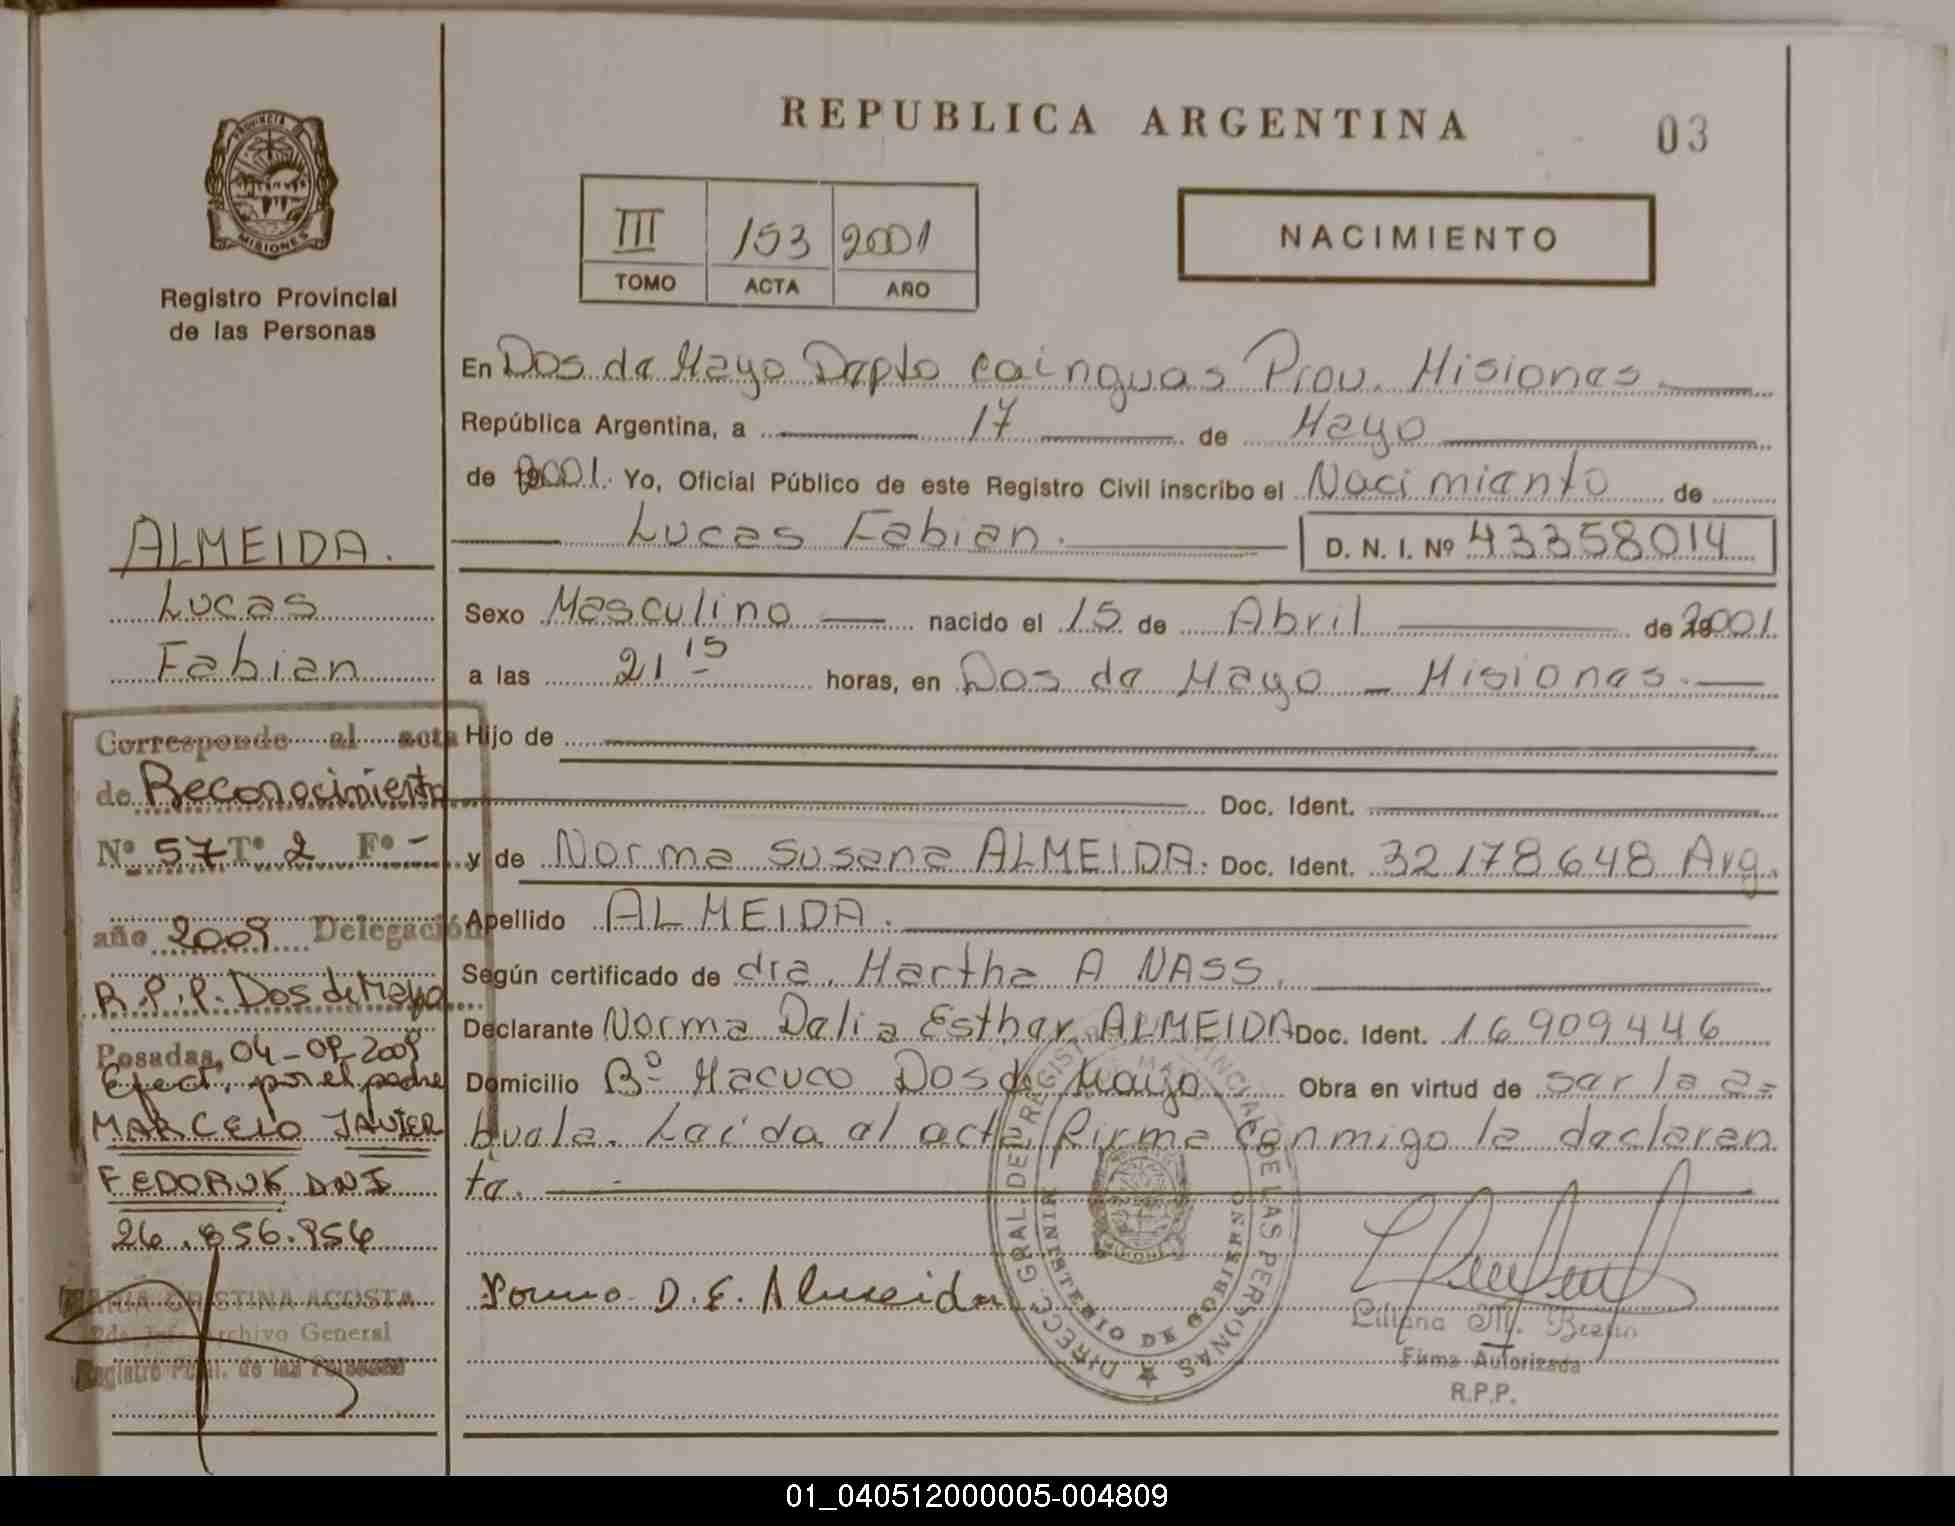 REPUBLICA ARGENTINA
03
PROVINCIA DE
MISIONES
Registro Provincial
de las Personas
III 153 2001
TOMO ACTA AÑO
NACIMIENTO
En Dos de Mayo Dapto cainguas Prov. Misiones
República Argentina, a 17 de Mayo
de 2001. Yo, Oficial Público de este Registro Civil inscribo el Nacimiento de
Lucas Fabian. D. N. I. Nº 43358014
Sexo Masculino nacido el 15 de Abril de 2001
a las 21 15 horas, en Dos de Mayo - Misiones.
Hijo de
Doc. Ident.
y de Norma Susana ALMEIDA. Doc. Ident. 32178648 Arg.
Apellido ALMEIDA.
Según certificado de dra. Martha A NASS.
Declarante Norma Dalia Esther ALMEIDA Doc. Ident. 16909446
Domicilio Bº Macuco Dos de Mayo Obra en virtud de ser la a=
buela. Leida el acta firma conmigo la declaran
te.
Norma D. E. Almeida
Liliana M.
Firma Autorizada
R.P.P.
DIRECC. GRAL. DEL REGISTRO PROVINCIAL DE LAS PERSONAS
MINISTERIO DE GOBIERNO
MISIONES
ALMEIDA.
Lucas
Fabian
Corresponde al acta
de Reconocimiento
Nº 57 Tº 2 Fº -
año 2009 Delegación
R.P.P. Dos de Mayo
Posadas, 04-09-2009
Efect. por el padre
MARCELO JAVIER
FEDORUK DNI
26.856.956
MARIA CRISTINA ACOSTA
Archivo General
Registro Pcial. de las Personas
01_040512000005-004809